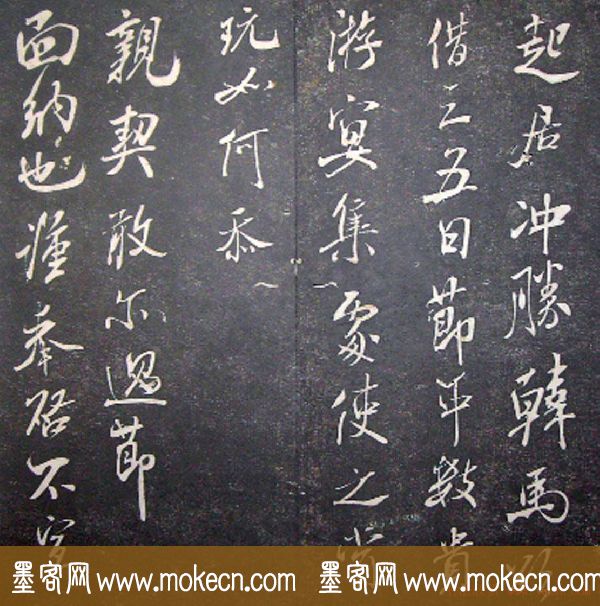 起居冲勝韓馬
借三五日節年數貴
游宴集處使之
玩如何忝
親契敢尔過節
面納也謹奉啓不宣
墨客网 www.mokecn.com 墨客网 www.mokecn.com